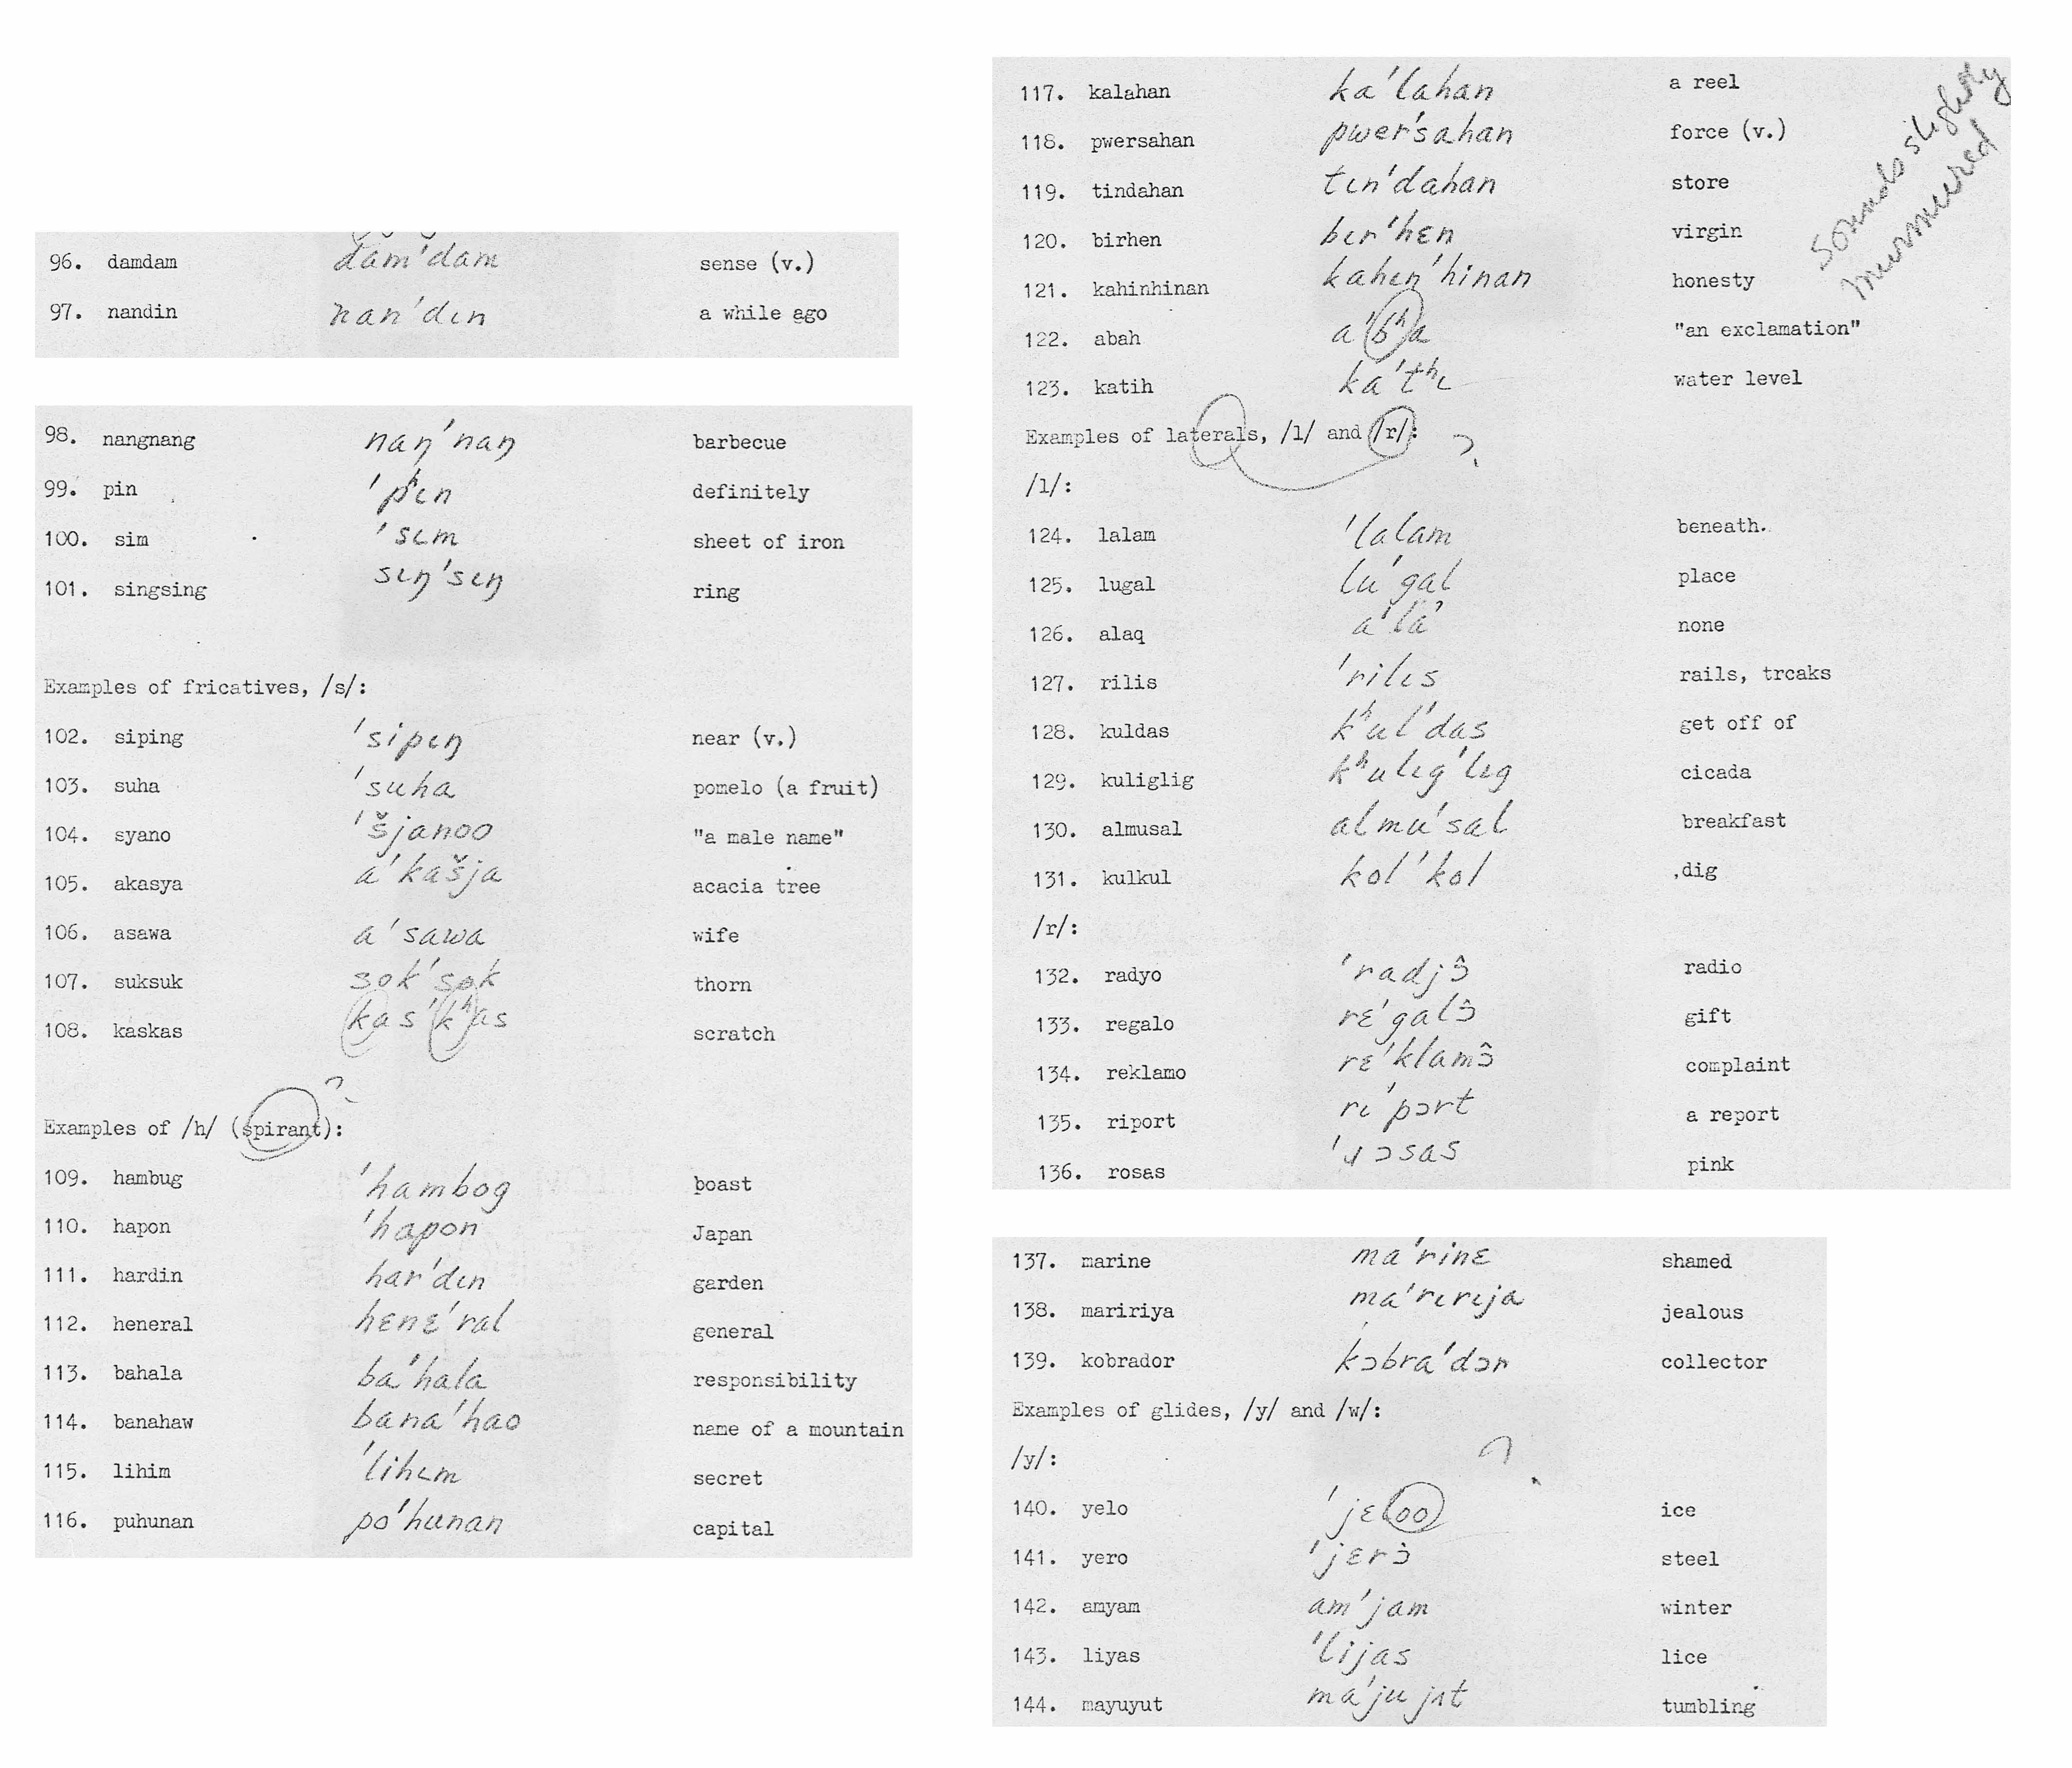 96. damdam dam'dam sense (v.)
97. nandin nan'dɩn a while ago
98. nangnang naŋ'naŋ barbecue
99. pin 'pʰɩn definitely
100. sim 'sɩm sheet of iron
101. singsing sɩŋ'sɩŋ ring
Examples of fricatives, /s/:
102. siping 'sipɩŋ near (v.)
103. suha 'suha pomelo (a fruit)
104. syano 'šjanoo "a male name"
105. akasya a'kašja acacia tree
106. asawa a'sawa wife
107. suksuk sok'sok thorn
108. kaskas kas'kʰas scratch
?
Examples of /h/ (spirant):
109. hambug 'hambog boast
110. hapon 'hapon Japan
111. hardin har'dɩn garden
112. heneral hɛnɛ'ral general
113. bahala ba'hala responsibility
114. banahaw bana'hao name of a mountain
115. lihim 'lihɩm secret
116. puhunan po'hunan capital
117. kalahan ka'lahan a reel
118. pwersahan pwer'sahan force (v.)
119. tindahan tɩn'dahan store
120. birhen bɩr'hɛn virgin
121. kahinhinan kahɩn'hinan honesty
122. abah a'bʰa "an exclamation"
123. katih ka'tʰɩ water level
sounds slightly
murmured
Examples of laterals, /l/ and /r/: ?
/l/:
124. lalam 'lalam beneath.
125. lugal lu'gal place
126. alaq a'laˀ none
127. rilis 'rilɩs rails, trcaks
128. kuldas kʰul'das get off of
129. kuliglig kʰulɩg'lɩg cicada
130. almusal almu'sal breakfast
131. kulkul kol'kol dig
/r/:
132. radyo 'radjɔ̂ radio
133. regalo rɛ'galɔ̂ gift
134. reklamo rɛ'klamɔ̂ complaint
135. riport rɩ'pɔrt a report
136. rosas 'ɹɔsas pink
137. marine ma'rinɛ shamed
138. maririya ma'rɩrɩja jealous
139. kobrador kɔbra'dɔr collector
Examples of glides, /y/ and /w/:
/y/: ?
140. yelo 'jɛloo ice
141. yero 'jɛrɔ̂ steel
142. amyam am'jam winter
143. liyas 'lijas lice
144. mayuyut ma'ju jʌt tumbling